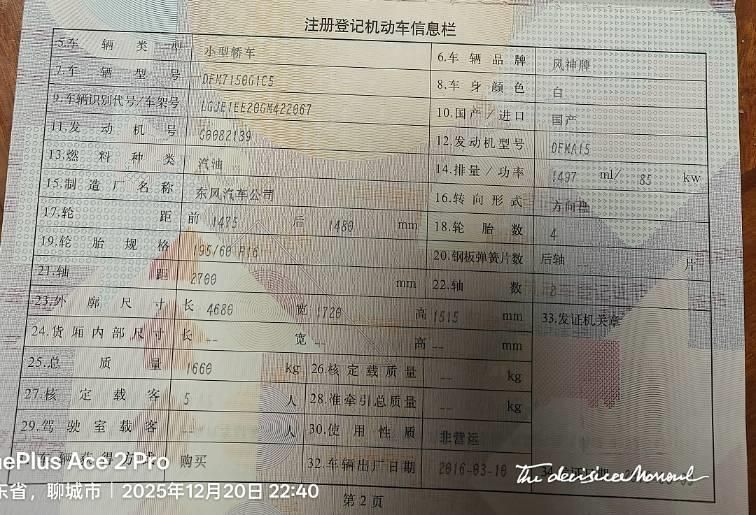 注册登记机动车信息栏
5.车辆类型 小型轿车 6.车辆品牌 风神牌
7.车辆型号 DFM7150G1C5 8.车身颜色 白
9.车辆识别代号/车架号 LGJE1EE20GM422067 10.国产/进口 国产
11.发动机号 G0082139 12.发动机型号 DFMA15
13.燃料种类 汽油 14.排量/功率 1497 ml/ 85 kw
15.制造厂名称 东风汽车公司 16.转向形式 方向盘
17.轮距 前 1475 后 1480 mm 18.轮胎数 4
19.轮胎规格 195/60 R16 20.钢板弹簧片数 后轴 片
21.轴距 2700 mm 22.轴数
23.外廓尺寸 长 4680 宽 1720 高 1515 mm 33.发证机关章
24.货厢内部尺寸 长 -- 宽 -- 高 -- mm
25.总质量 1660 kg 26.核定载质量 -- kg
27.核定载客 5 人 28.准牵引总质量 -- kg
29.驾驶室载客 -- 人 30.使用性质 非营运
购买 32.车辆出厂日期 2016-03-10
nePlus Ace 2 Pro
东省，聊城市 | 2025年12月20日 22:40
第2页